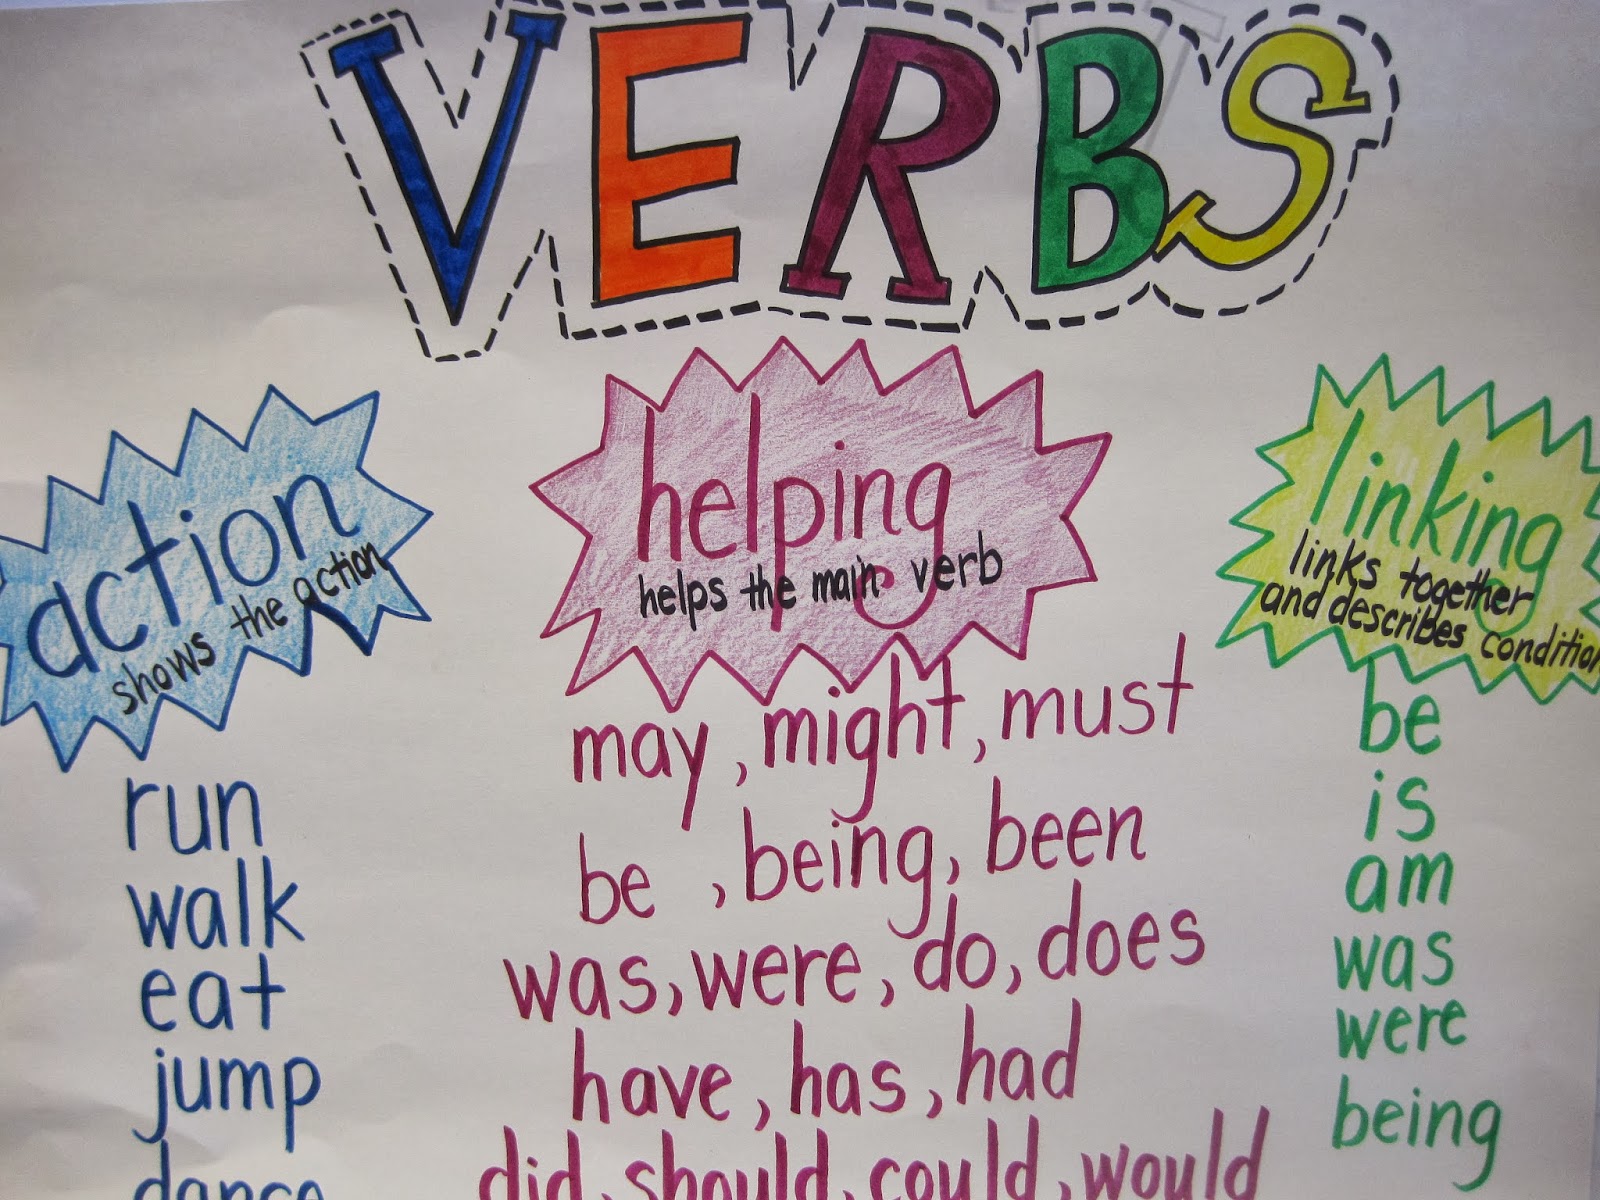 VERBS
action
shows the action
run
walk
eat
jump
dance
helping
helps the main verb
may, might, must
be, being, been
was, were, do, does
have, has, had
did, should, could, would
linking
links together
and describes condition
be
is
am
was
were
being